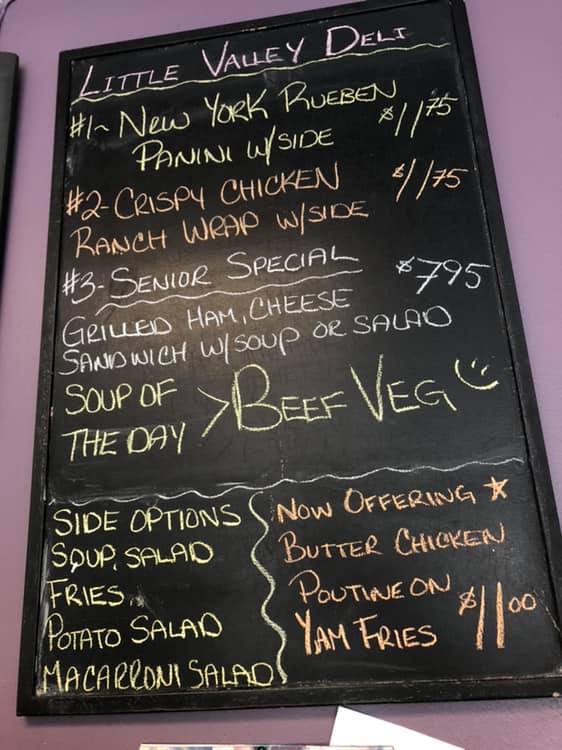 LITTLE VALLEY DELI
#1~ NEW YORK RUEBEN $11 75
PANINI W/SIDE
#2-CRISPY CHICKEN $11 75
RANCH WRAP W/SIDE
#3-SENIOR SPECIAL $7 95
GRILLED HAM, CHEESE
SANDWICH W/SOUP OR SALAD
SOUP OF
THE DAY > BEEF VEG
SIDE OPTIONS
SOUP, SALAD
FRIES,
POTATO SALAD
MACARRONI SALAD
NOW OFFERING
BUTTER CHICKEN
POUTINE ON
YAM FRIES $11 00